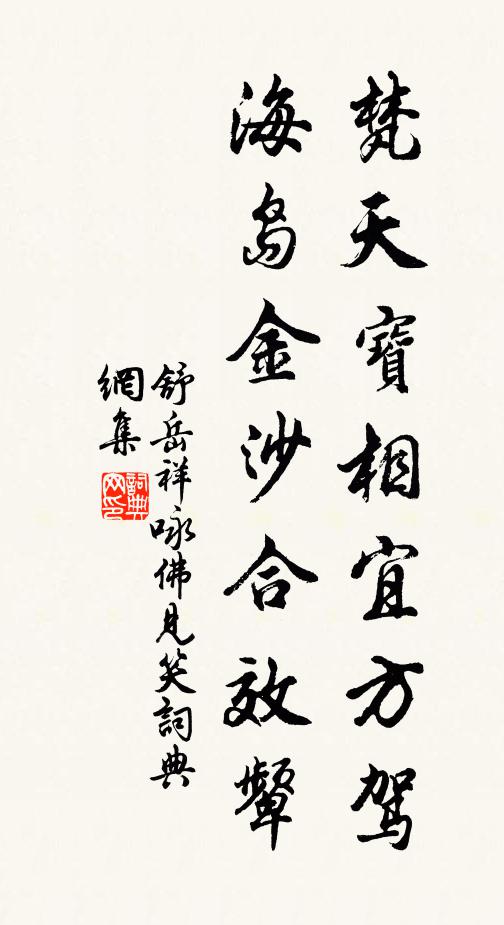 梵天寶相宜方駕
海島金沙合效颦
舒岳祥咏佛見笑詞典
網集
詞典网印